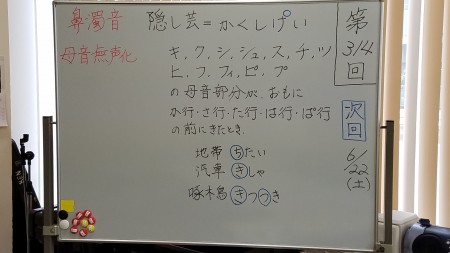 鼻濁音 隠し芸=かくしけ゜い
母音無声化 キ,ク,シ,シュ,ス,チ,ツ
ヒ,フ,フィ,ピ,プ
の母音部分が、おもに
か行・さ行・た行・は行・ぱ行
の前にきたとき
地帯 ちたい
汽車 きしゃ
啄木鳥 きつつき
第
3/4
回
次
回
6/22
(土)